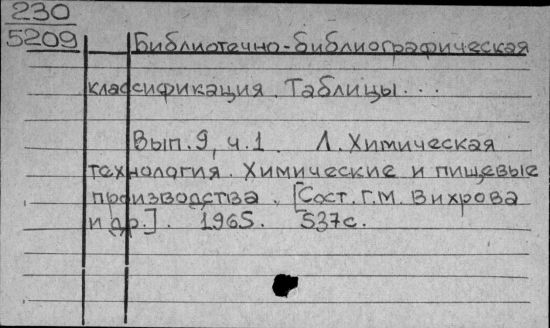 230
5209
Библиотечно-библиографическая
классификация. Таблицы...
Вып. 9, ч. 1. Л. Химическая
технология. Химические и пищевые
производства. [Сост. Г.М. Вихрова
и др.]. 1965. 537с.